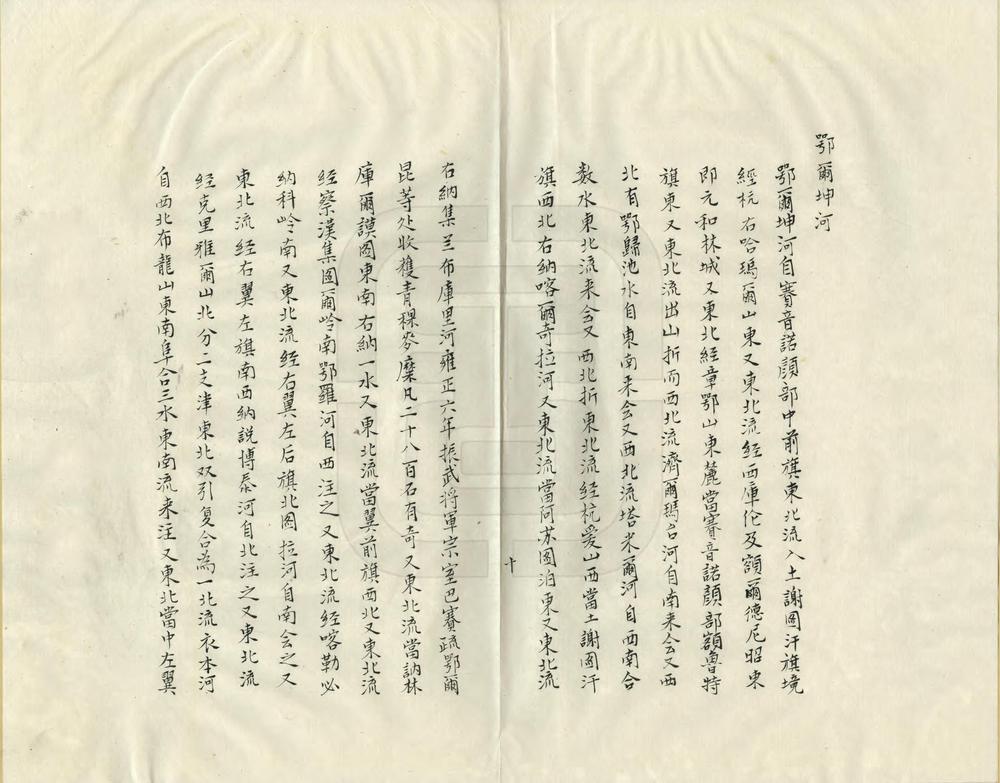 鄂爾坤河
鄂爾坤河自賽音諾顔部中前旗東北流入土謝圖汗旗境
經杭右哈瑪爾山東又東北流經西庫伦及額爾德尼昭東
即元和林城又東北經章鄂山東麓當賽音諾顔部額魯特
旗東又東北流出山折而西北流濟爾瑪台河自南来会又西
北有鄂歸池水自東南来会又西北流塔米爾河自西南合
数水東北流来会又西北折東北流經杭爱山西當土謝圖汗
旗西北右納喀爾奇拉河又東北流當阿苏圖泊東又東北流
十
右納集兰布庫里河雍正六年振武将軍宗室巴賽疏鄂爾
昆等处收穫青稞麥糜凡二十八百石有奇又東北流當訥林
庫爾謨圖東南右納一水又東北流當翼前旗西北又東北流
经察漢集圖爾岭南鄂羅河自西注之又東北流经喀勒必
納科岭南又東北流经右翼左后旗北图拉河自南会之又
東北流经右翼左旗南西納説博泰河自北注之又東北流
经克里雅爾山北分二支津東北双引复合為一北流衣本河
自西北布龍山東南阜合三水東南流来注又東北當中左翼